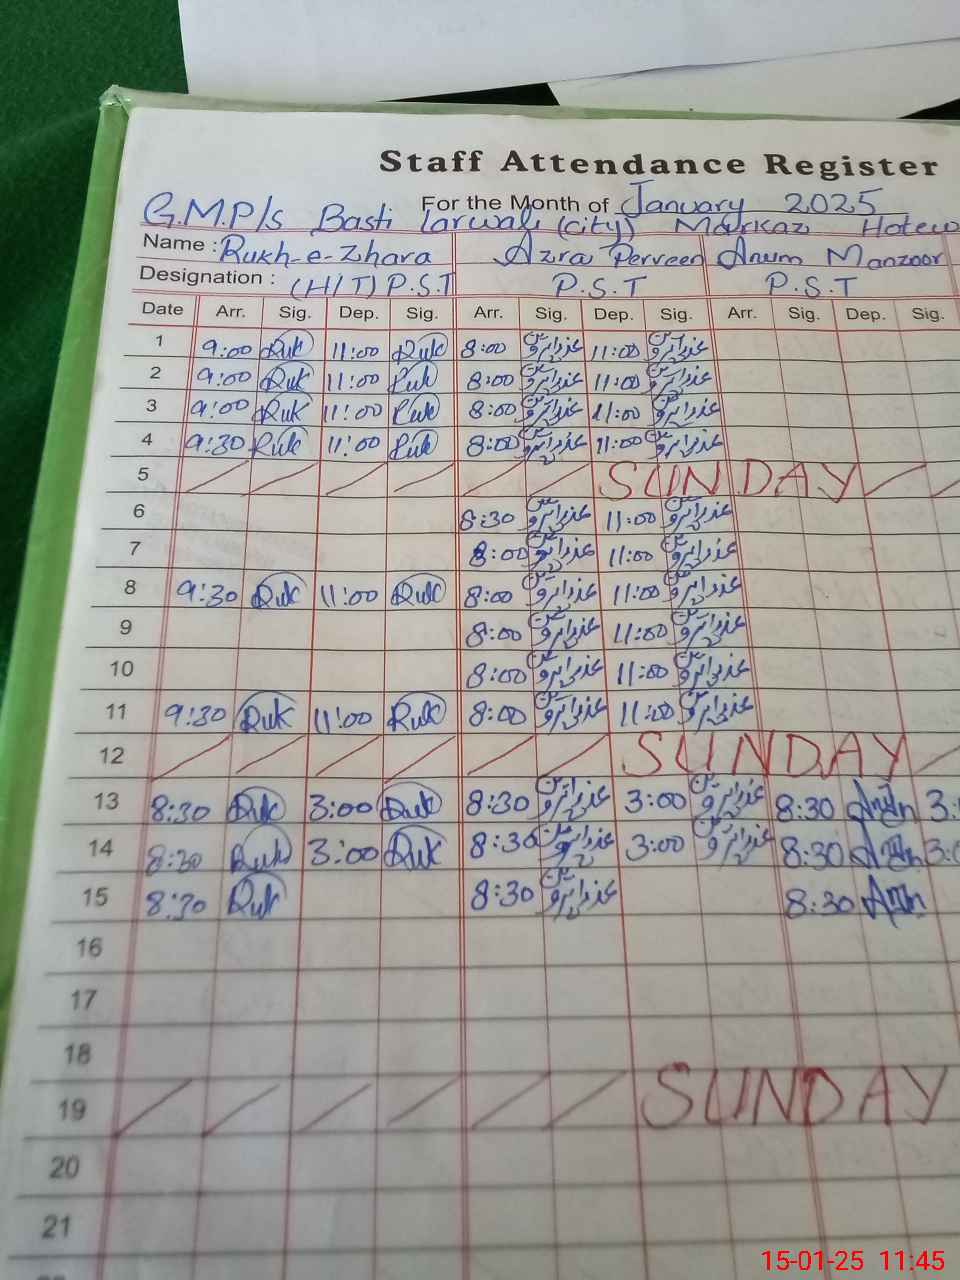 Staff Attendance Register
For the Month of January 2025
G.M.P/s Basti Jarwali (city) Markaz
Name : Rukh-e-Zhara Azra Perveen Anum Manzoor
Designation : (H/T) P.S.T P.S.T P.S.T
Date Arr. Sig. Dep. Sig. Arr. Sig. Dep. Sig. Arr. Sig. Dep. Sig.
1 9:00 Ruk 11:00 Ruk 8:00 عذرا پروین 11:00 عذرا پروین
2 9:00 Ruk 11:00 Ruk 8:00 عذرا پروین 11:00 عذرا پروین
3 9:00 Ruk 11:00 Ruk 8:00 عذرا پروین 11:00 عذرا پروین
4 9:30 Ruk 11:00 Ruk 8:00 عذرا پروین 11:00 عذرا پروین
5 SUNDAY
6 8:30 عذرا پروین 11:00 عذرا پروین
7 8:00 عذرا پروین 11:00 عذرا پروین
8 9:30 Ruk 11:00 Ruk 8:00 عذرا پروین 11:00 عذرا پروین
9 8:00 عذرا پروین 11:00 عذرا پروین
10 8:00 عذرا پروین 11:00 عذرا پروین
11 9:30 Ruk 11:00 Ruk 8:00 عذرا پروین 11:00 عذرا پروین
12 SUNDAY
13 8:30 Ruk 3:00 Ruk 8:30 عذرا پروین 3:00 عذرا پروین 8:30 Anum 3:
14 8:30 Ruk 3:00 Ruk 8:30 عذرا پروین 3:00 عذرا پروین 8:30 Anum 3:0
15 8:30 Ruk 8:30 عذرا پروین 8:30 Anum
16
17
18
19 SUNDAY
20
21
15-01-25 11:45